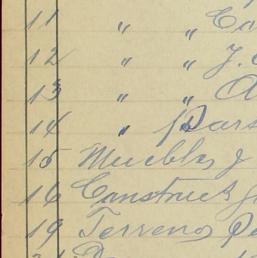 11 " " Co
12 " " J.
13 " " A
14 " Pars
15 Muebles y
16 Construct
19 Terreno